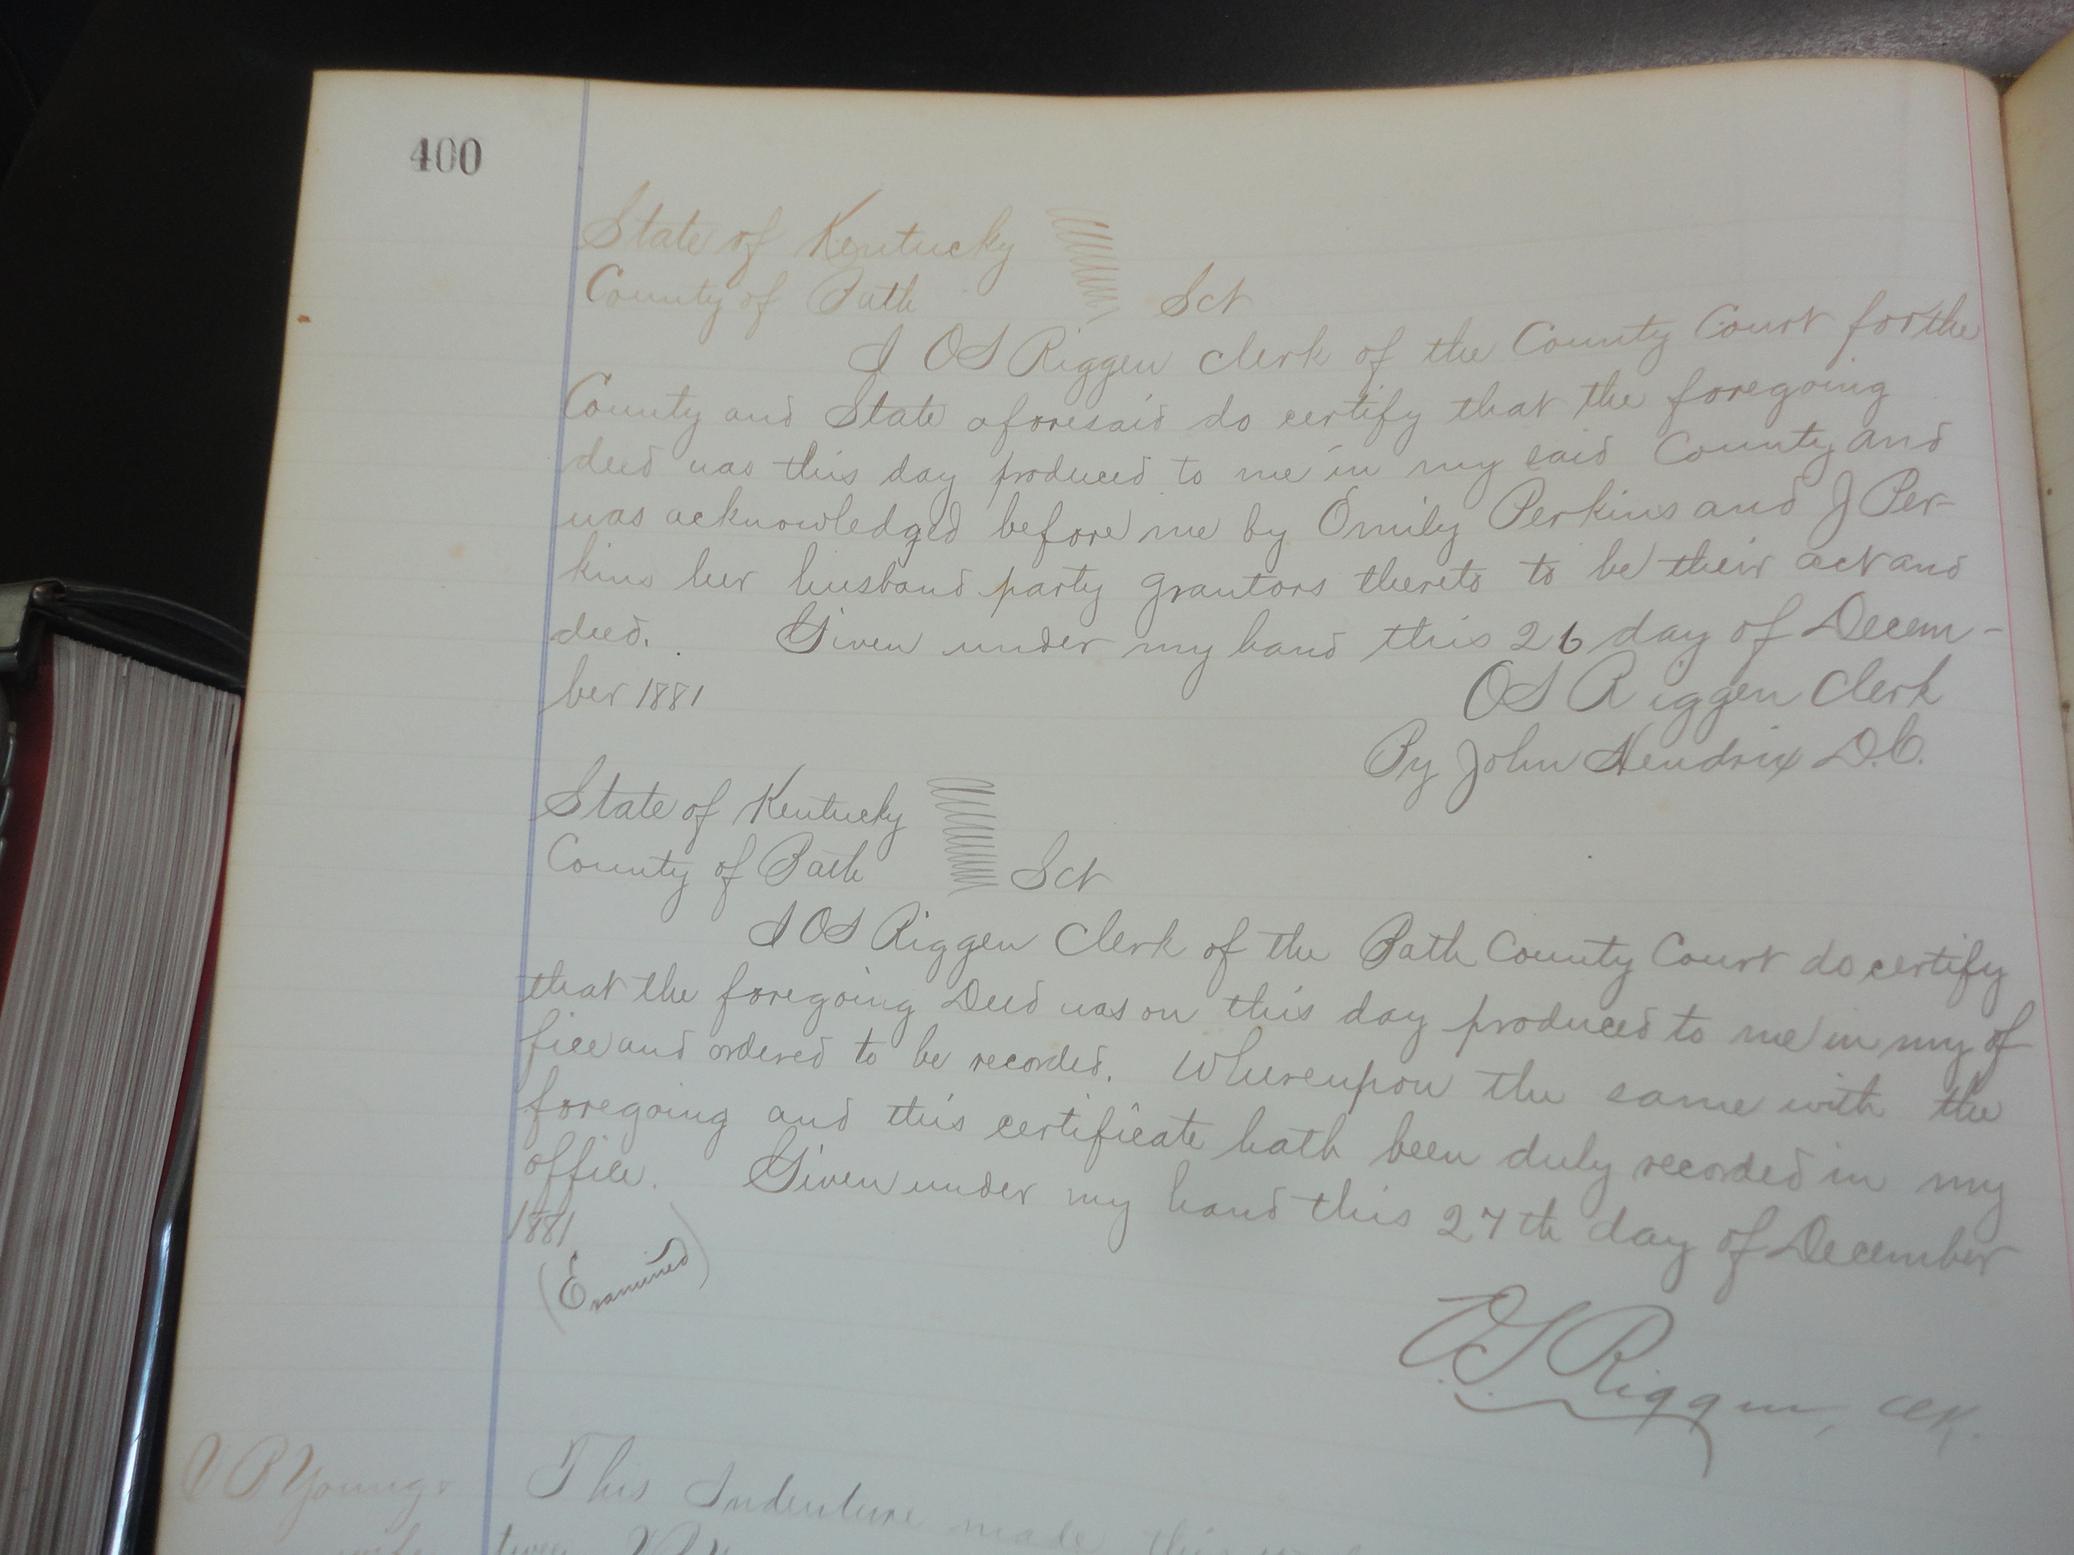 400
State of Kentucky
County of Bath Sct
I OS Riggen Clerk of the County Court for the
County and State aforesaid do certify that the foregoing
deed was this day produced to me in my said County and
was acknowledged before me by Emily Perkins and J Per-
kins her husband party grantors thereto to be their act and
deed. Given under my hand this 26 day of Decem-
ber 1881 OS Riggen Clerk
By John Hendrix D.C.
State of Kentucky
County of Bath Sct
I OS Riggen Clerk of the Bath County Court do certify
that the foregoing Deed was on this day produced to me in my of
fice and ordered to be recorded. Whereupon the same with the
foregoing and this certificate hath been duly recorded in my
office. Given under my hand this 27th day of December
1881
(Examined)
O.S. Riggen, Clk.
V P Young This Indenture made this
wife tween